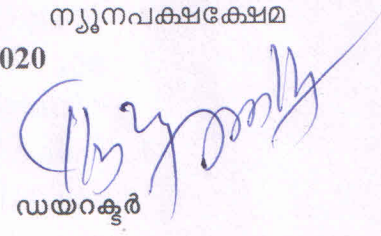 ന്യൂനപക്ഷക്ഷേമ
020
ഡയറക്ടർ